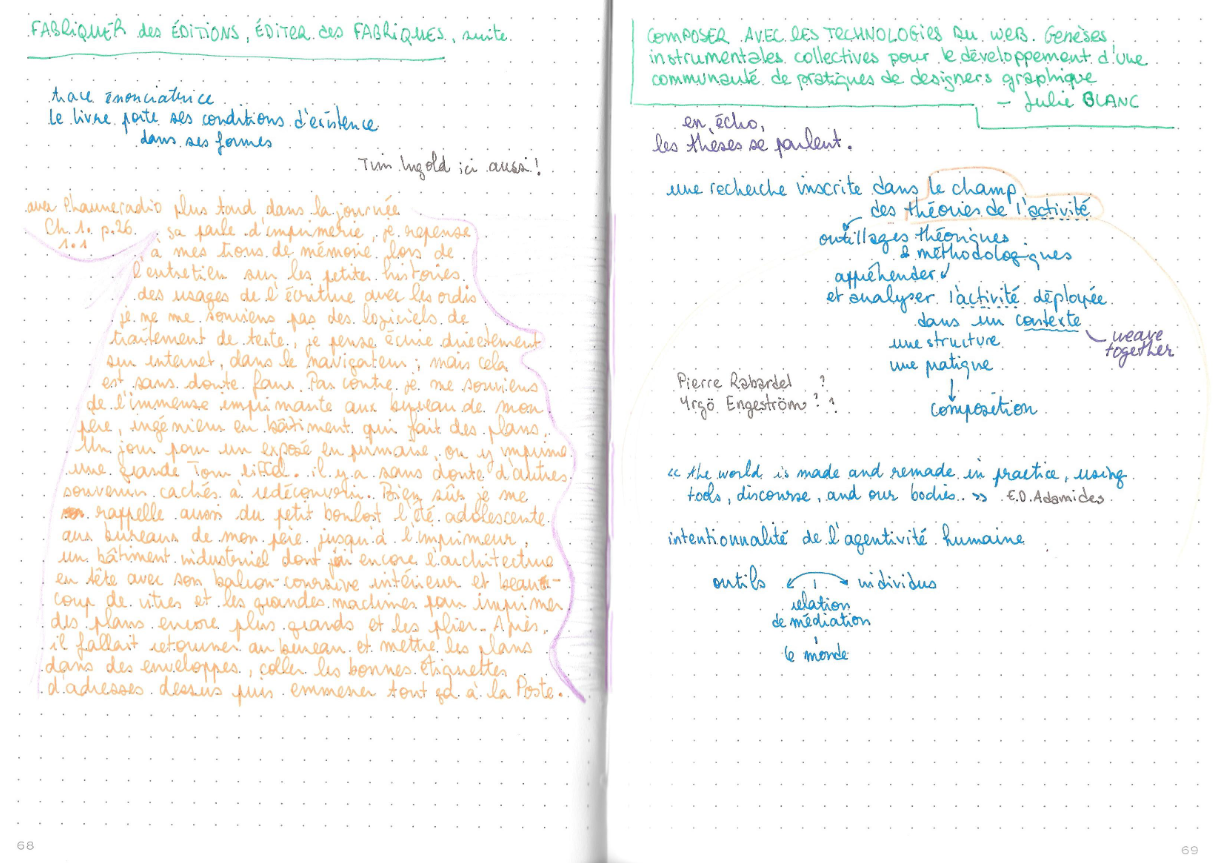 FABRIQUER des ÉDITIONS, ÉDITER des FABRIQUES, suite.
trace énonciatrice
le livre porte ses conditions d'existence
dans ses formes
Tim Ingold ici aussi!
avec Phauneradio plus tard dans la journée
Ch. 1. p.26.
1.1
ça parle d'imprimerie, je repense
à mes trous de mémoire lors de
l'entretien sur les petites histoires
des usages de l'écriture avec les ordis.
je ne me souviens pas des logiciels de
traitement de texte, je pense écrire directement
sur internet, dans le navigateur, mais cela
est sans doute faux. Par contre je me souviens
de l'immense imprimante aux bureau de mon
père, ingénieur en bâtiment qui fait des plans.
Un jour pour un exposé en primaire, on y imprime
une grande Tour Eiffel. il y a sans doute d'autres
souvenirs cachés à redécouvrir. Bien sûr je me
rappelle aussi du petit boulot l'été adolescente
aux bureaux de mon père jusqu'à l'imprimeur,
un bâtiment industriel dont j'ai encore l'architecture
en tête avec son balcon-coursive intérieur et beau-
coup de vitres et les grandes machines pour imprimer
des plans encore plus grands et les plier. Après,
il fallait retourner au bureau et mettre les plans
dans des enveloppes, coller les bonnes étiquettes
d'adresses dessus puis emmener tout ça à la Poste.
68
COMPOSER AVEC LES TECHNOLOGIES DU WEB. Genèses
instrumentales collectives pour le développement d'une
communauté de pratiques de designers graphique
– Julie BLANC
en écho,
les thèses se parlent.
une recherche inscrite dans le champ
des théories de l'activité
outillages théoriques
& méthodologiques
appréhender
et analyser l'activité déployée
dans un contexte
weave
together
une structure
une pratique
Pierre Rabardel ?
Yrgö Engeström ? ?
composition
« the world is made and remade in practice, using
tools, discourse, and our bodies. » E.D. Adamides
intentionnalité de l'agentivité humaine
outils individus
relation
de médiation
le monde
69